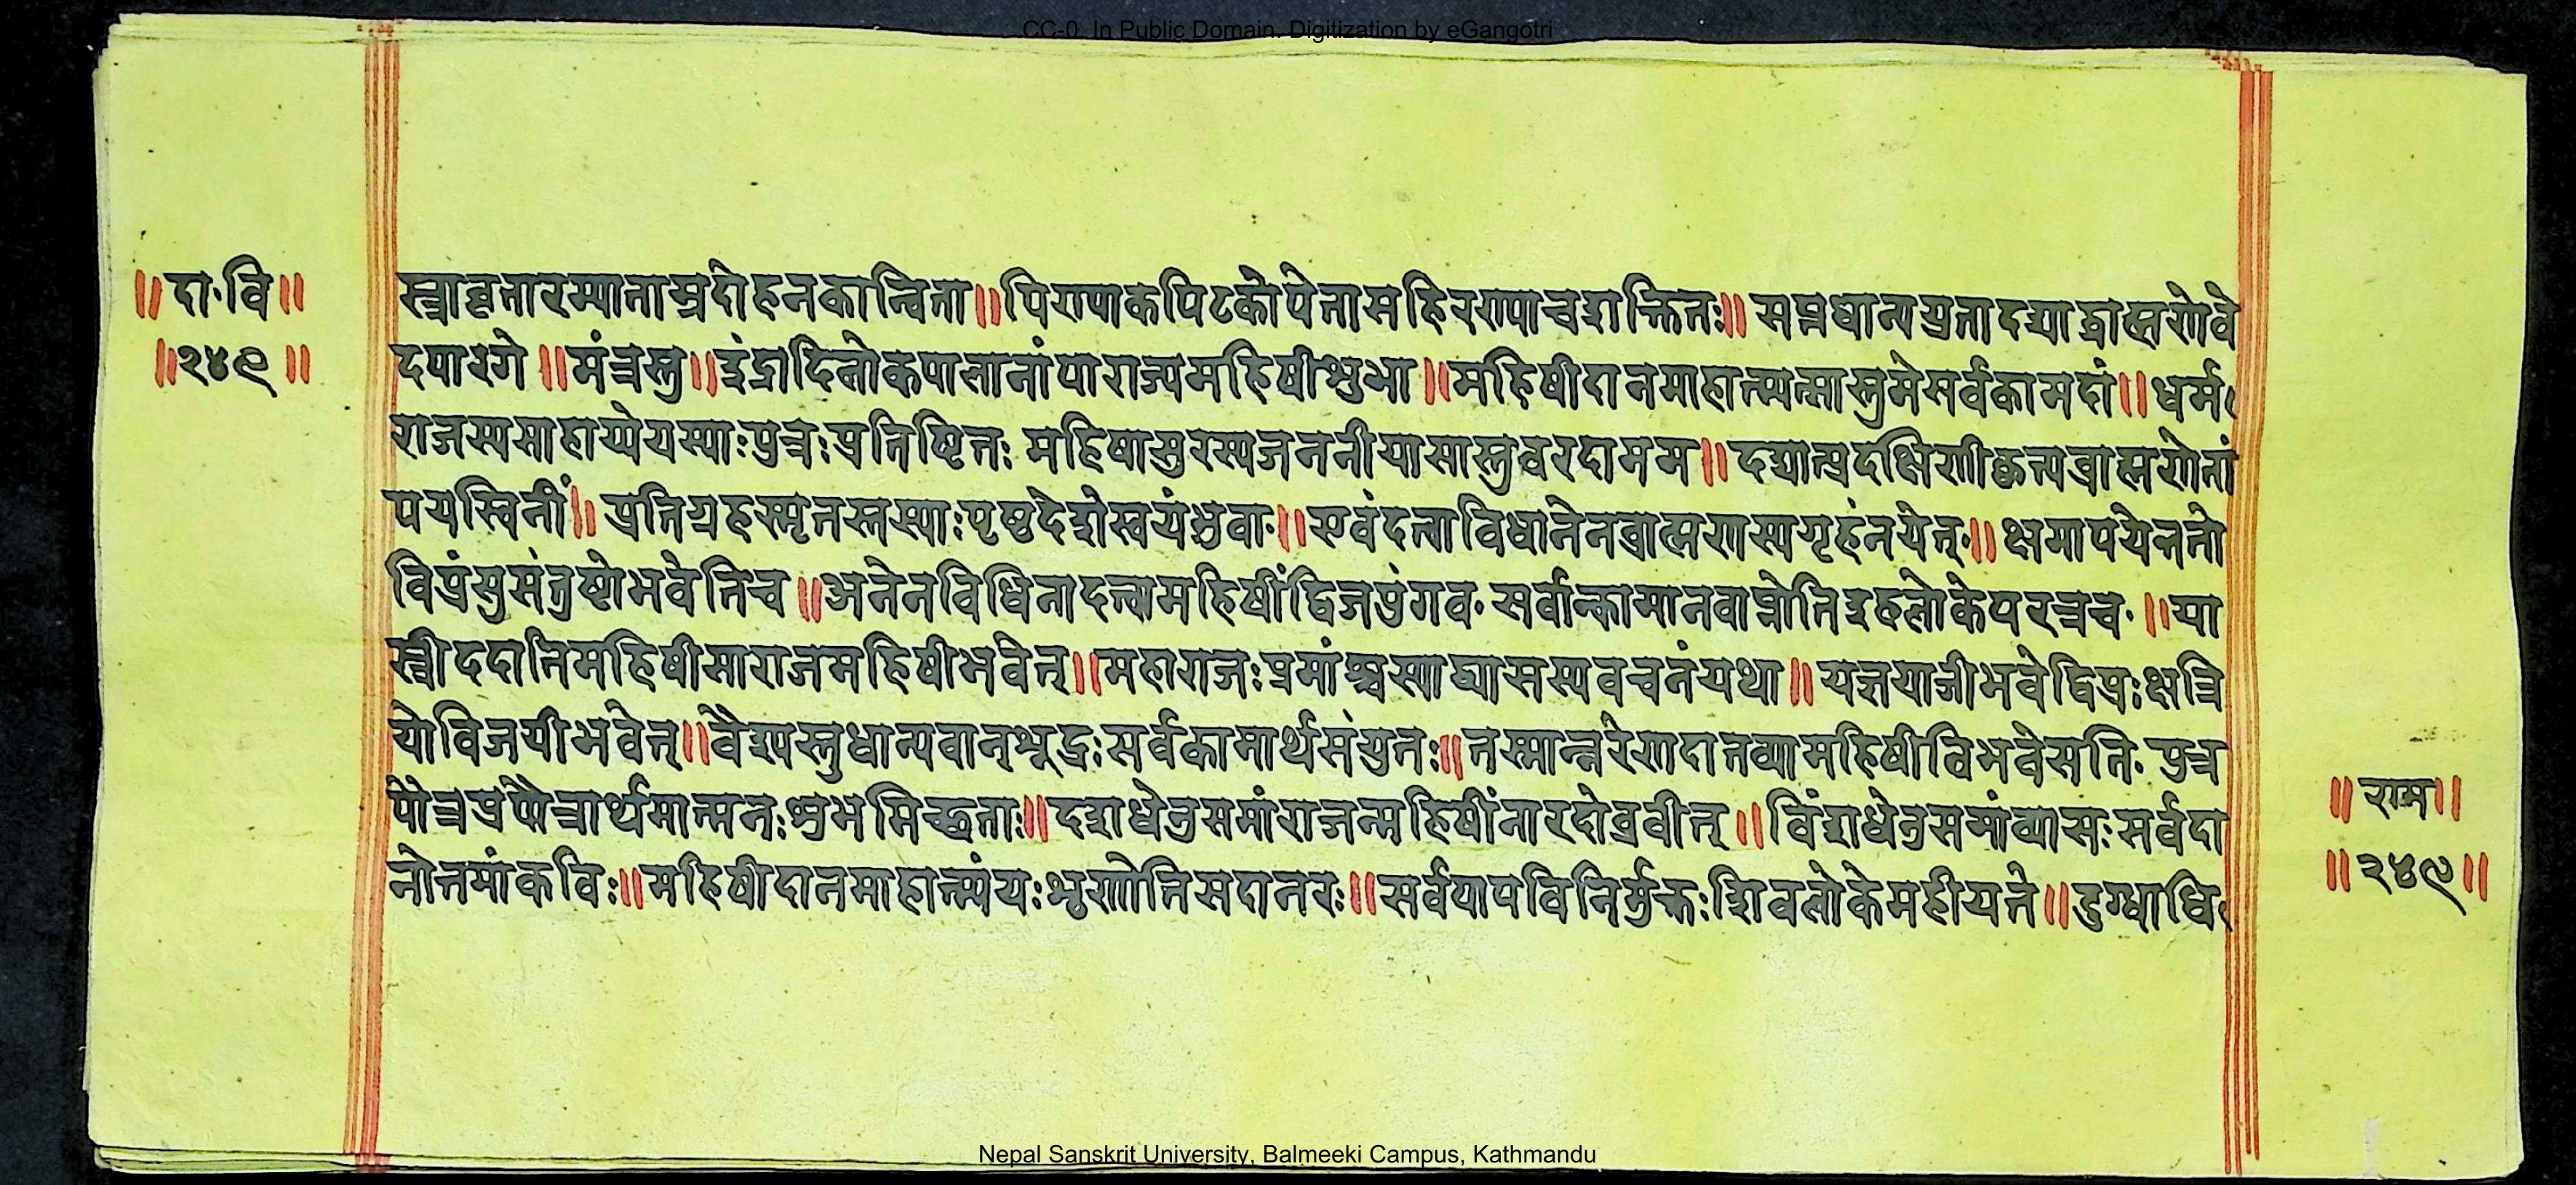 CC-0. In Public Domain. Digitization by eGangotri
॥दा॰वि॥
॥२४९॥
स्त्रावृतारम्याताम्रदोहनकान्विता॥पिण्याकपिटकोपेतामहिरण्याचशक्तितः॥सप्तधान्ययुतादद्याद्ब्राह्मणेवे
दपारगे॥मंत्रस्तु॥इंद्रादिलोकपालानांयाराज्यमहिषीशुभा॥महिषीदानमाहात्म्यत्सास्तुमेसर्वकामदां॥धर्म
राजस्यसाहाय्येयस्याःपुत्रःप्रतिष्टितः महिषासुरस्यजननीयासास्तुवरदामम॥दद्यात्प्रदक्षिणीकृत्यब्राह्मणेतां
पयस्विनीं॥प्रतिग्रहस्मृतस्तस्याःपृष्ठदेशेस्वयंभुवा॰॥एवंदत्वाविधानेनब्राह्मणस्यगृहंनयेत्॰॥क्षमापयेत्ततो
विप्रंसुसंतुष्टोभवेतिच॥अनेनविधिनादत्त्वामहिषींद्विजपुंगव॰सर्वान्कामानवाप्नोतिइहलोकेपरत्रच॰॥या
स्त्रीददातिमहिषीसाराजमहिषीभवेत्॥महाराजःपुमांश्चस्याद्व्यासस्यवचनंयथा॥यज्ञयाजीभवेद्विप्रःक्षत्रि
योविजयीभवेत्॥वैश्यस्तुधान्यवान्शूद्रःसर्वकामार्थसंयुतः॥तस्मान्नरेणदातव्यामहिषीविभवेसति॰पुत्र
पौत्रप्रपौत्रार्थमात्मनःशुभमिच्छताः॥दशधेनुसमांराजन्महिषींनारदोब्रवीत्॥विंशधेनुसमांव्यासःसर्वदा
नोत्तमांकविः॥महिषीदानमाहात्म्यंयःशृणोतिसदानरः॥सर्वपापविनिर्मुक्तःशिवलोकेमहीयते॥दुग्धाधि
॥राम॥
॥२४९॥
Nepal Sanskrit University, Balmeeki Campus, Kathmandu